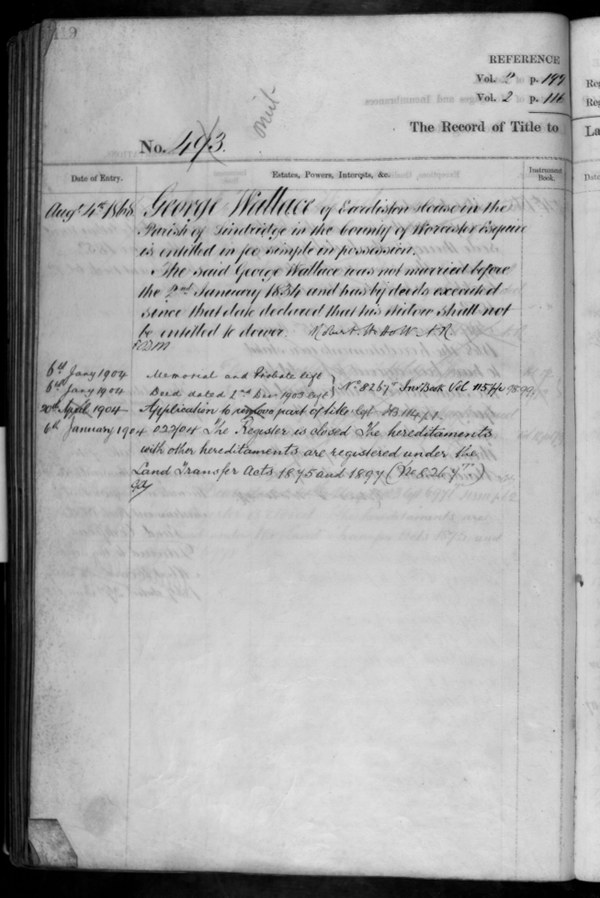 REFERENCE
Vol. 2 p. 199
Vol. 2 p. 116
The Record of Title to
No. 493.
Date of Entry.
Estates, Powers, Interests, &c.
Instrument Book.
Augt 4th 1868
George Wallace of Eardiston House in the
Parish of Lindridge in the County of Worcester Esquire
is entitled in fee simple in possession.
The said George Wallace was not married before
the 2nd January 1834 and has by deeds executed
since that date declared that his Widow shall not
be entitled to dower.
6th Jany 1904 Memorial and Probate left
6th Jany 1904 Deed dated 2nd 1903
No 8267 Inst Book Vol 115 p
20th April 1904 Application to remove part of title
6th January 1904 022/04 The Register is closed The hereditaments
with other hereditaments are registered under the
Land Transfer Acts 1875 and 1897
La